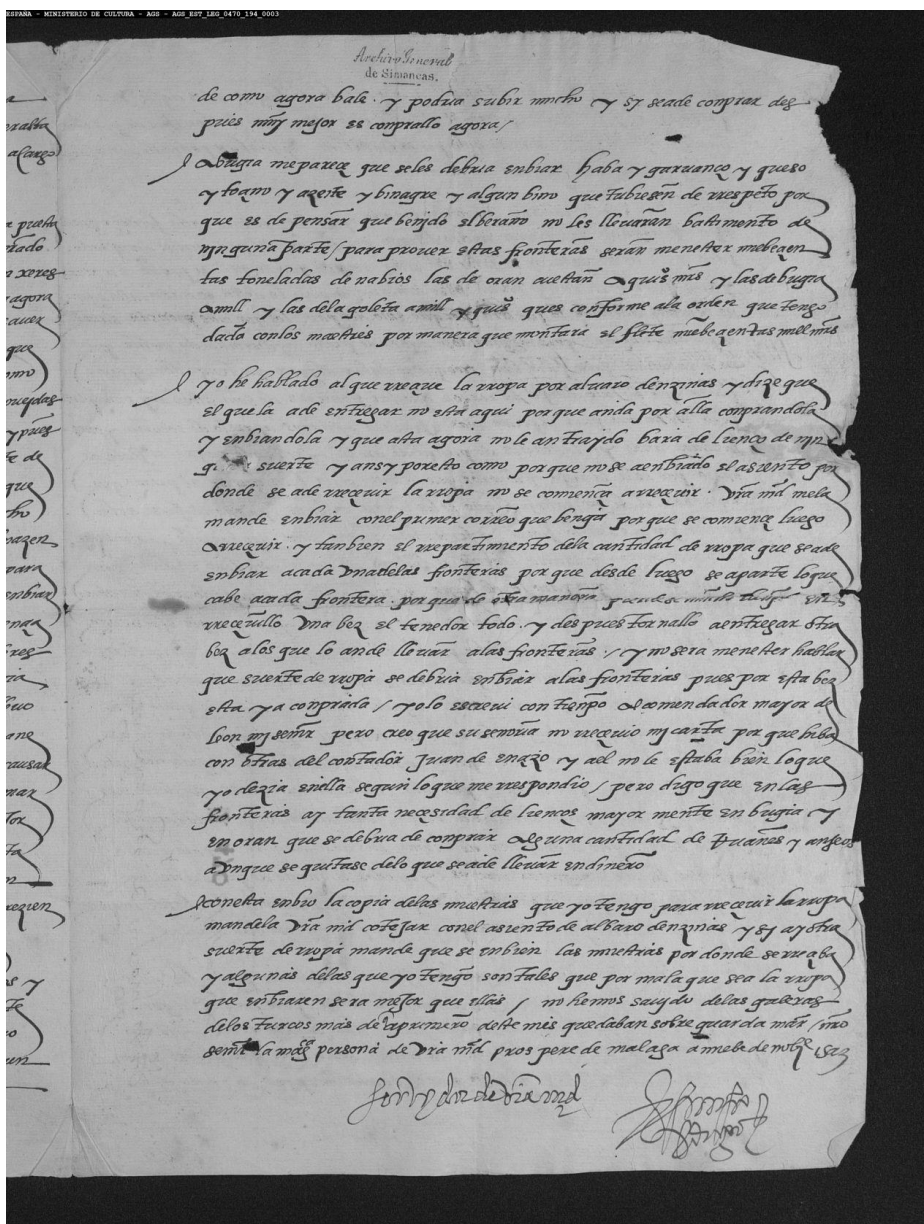 ESPAÑA - MINISTERIO DE CULTURA - AGS - AGS_EST_LEG_0470_194_0003
Archivo General
de Simancas.
de como agora bale . y podria subir mucho y sy se a de conprar des
pues muy mejor es conprallo agora /
A bugia me parece que se les debria enbiar haba y garuanço y queso
y toçino y azeite y binagre y algun bino que tubiesen de rrespeto por
que es de pensar que benjdo el berano no les llevaran batimento de
njnguna parte / para prover estas fronteras seran menester nuebeçien
tas toneladas de nabios las de oran questan a quis mrs y las de bugia
a mill y las de la goleta a mill y quis ques conforme a la orden que tengo
dado con los maestres por manera que montara el flete nuebeçentas mill mrs
yo he hablado al que rreçiue la rropa por alvaro denzinas y dize que
el que la a de entregar no esta aqui porque anda por alla conprandola
y enbiandola y que asta agora no le an traydo bara de lienço de njn
guna suerte y ansy por esto como por que no se a enbiado el asiento por
donde se a de rreçeuir la rropa no se comiença a rreçeuir . Vra md me la
mande enbiar con el primer correo que benga porque se comience luego
a rreçeuir . y tanbien el rrepartimento de la cantidad de rropa que se a de
enbiar a cada vna de las fronteras porque desde luego se aparte lo que
cabe a cada frontera . porque de otra manera
rreçeuillo vna bez el tenedor todo . y despues tornallo a entregar otra
bez a los que lo an de llevar a las fronteras . / y no sera menester hablar
que suerte de rropa se debria enbiar a las fronteras pues por esta bez
esta ya conprada / yo lo escreui con tienpo al comendador mayor de
leon mj señor pero creo que su señoria no rreçeuio mj carta porque hiba
con otras del contador Juan de enazo y a el no le estaba bien lo que
yo dezia en ella segun lo que me rrespondio / pero digo que en las
fronteras ay tanta neçesidad de lienços mayor mente en bugia y
en oran que se debria de conprar alguna cantidad de Ruanes y anjeos
avnque se quitase de lo que se a de llevar en dinero
con esta enbio la copia de las muestras que yo tengo para rreçeuir la rropa
mandela Vra md cotejar con el asiento de albaro denzinas y sy ay otra
suerte de rropa mande que se enbien las muestras por donde se rreçiba
y algunas de las que yo tengo son tales que por mala que sea la rropa
que enbiaren sera mejor que ellas / no hemos sauydo de las galeras
de los turcos mas de q a primero deste mes quedaban sobre guardamar / nro
señor la mag persona de Vra md prospere de malaga a nuebe de nobe 1543
servydor de Vra md